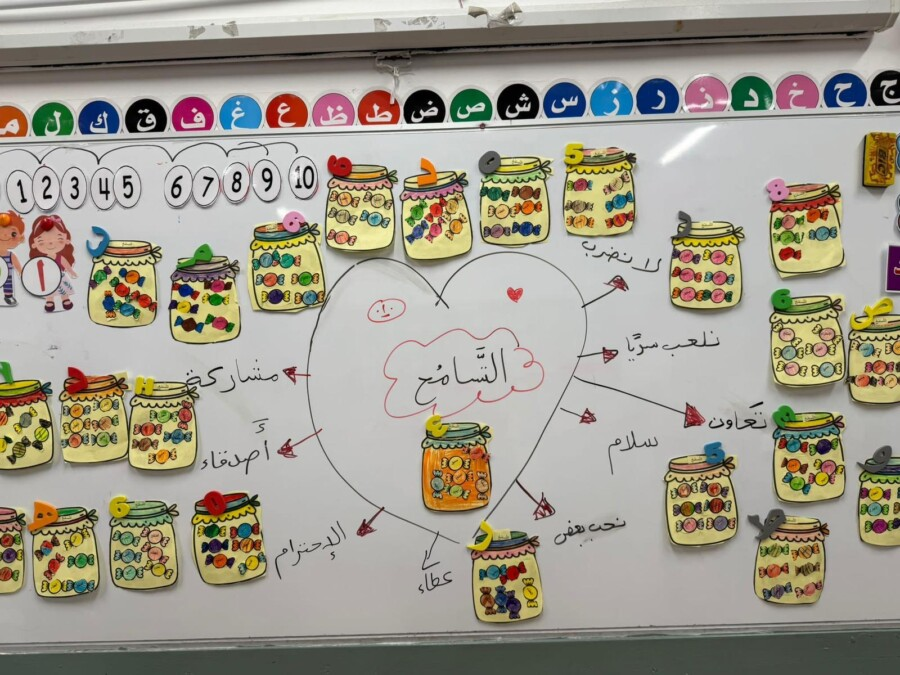 م ل ك ق ف غ ع ظ ط ض ص ش س ز ر ذ د خ ح ج
1 2 3 4 5 6 7 8 9 10
التَّسامُح
لا نضرب
نلعب سويًّا
تَعاون
سلام
نحب بعض
عطاء
الإحترام
أصدقاء
مشاركة